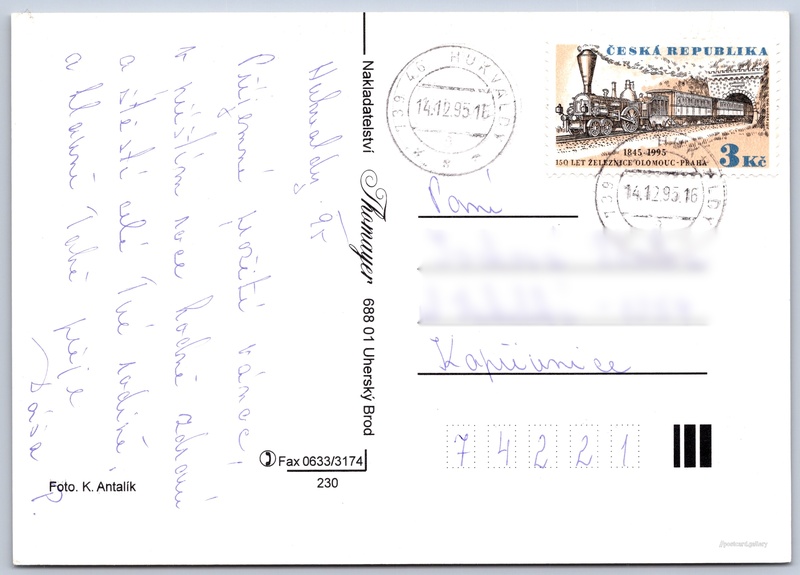 Hukvaldy, 95
Příjemné prožití vánoc,
v příštím roce hodně zdraví
a štěstí celé Tvé rodině,
a hlavně Tobě přeje
Dáša P.
Foto. K. Antalík
Nakladatelství Thomayer 688 01 Uherský Brod
Fax 0633/3174
230
739 46 HUKVALDY
14.12.95.16
ČESKÁ REPUBLIKA
1845-1995
150 LET ŽELEZNICE OLOMOUC-PRAHA
3 Kč
739
14.12.95.16
Paní
Kopřivnice
74221
postcard.gallery